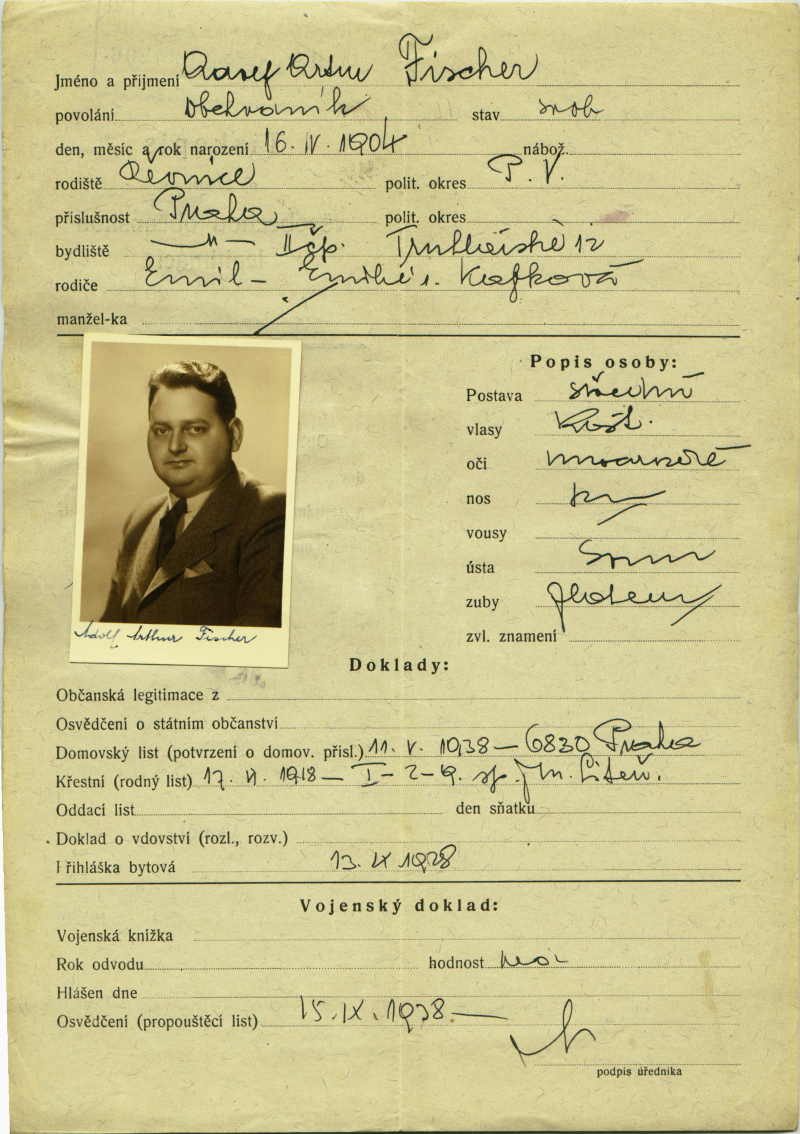 Jméno a příjmení Artur Fischer
povolání obchodník stav svob
den, měsíc a rok narození 16. IV. 1904 nábož.
rodiště Řevnice polit. okres P. V.
příslušnost Praha polit. okres
bydliště — " — II čp. 12
rodiče Emil – Emilie r. Kafková
manžel-ka
Popis osoby:
Postava střední
vlasy kašt.
oči
nos
vousy
ústa
zuby
zvl. znamení
Adolf Arthur Fischer
Doklady:
Občanská legitimace z
Osvědčení o státním občanství
Domovský list (potvrzení o domov. přísl.) 11. V. 1938 — 6830 Praha
Křestní (rodný list) 17. VI. 1918 — I – 2 – 19. Liteň.
Oddací list den sňatku
Doklad o vdovství (rozl., rozv.)
Přihláška bytová 13. IX 1938
Vojenský doklad:
Vojenská knížka
Rok odvodu hodnost
Hlášen dne
Osvědčení (propouštěcí list) 15. IX. 1938. —
podpis úředníka